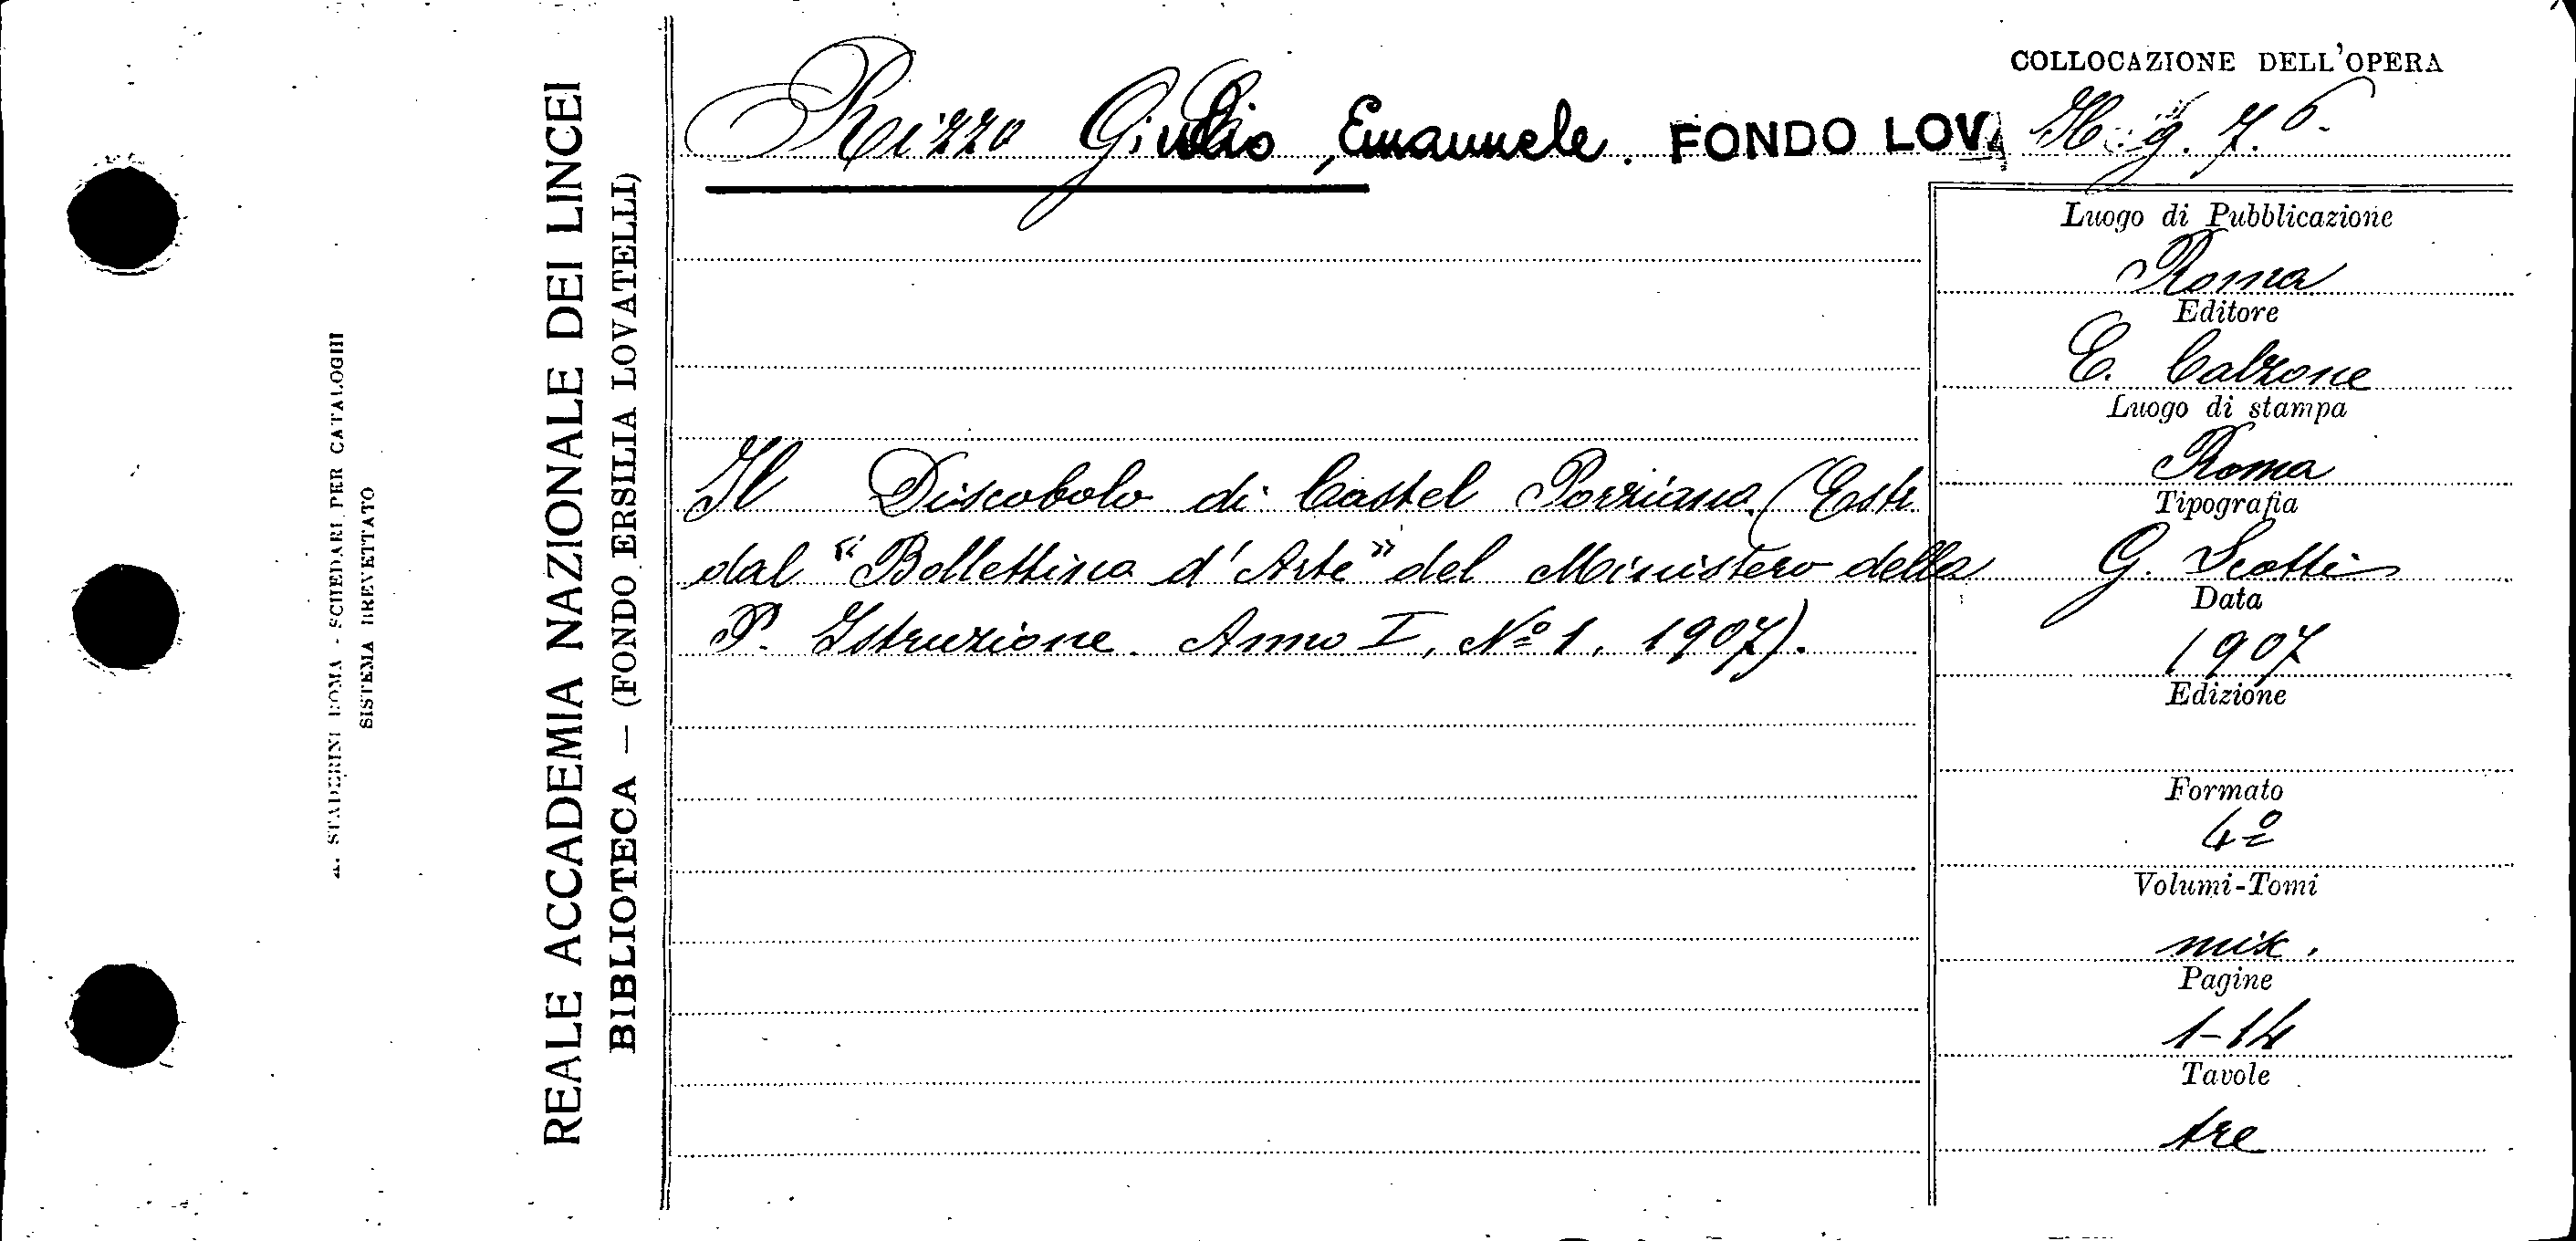 COLLOCAZIONE DELL'OPERA
Rizzo Giulio, Emanuele. FONDO LOVA
g. 7. 6.
Il Discobolo di Castel Porziano (Estr.
dal "Bollettino d'Arte" del Ministero della
P. Istruzione. Anno I, Nº 1, 1907).
Luogo di Pubblicazione
Roma
Editore
E. Calzone
Luogo di stampa
Roma
Tipografia
G. Scotti
Data
1907
Edizione
Formato
4º
Volumi-Tomi
Pagine
1-14
Tavole
tre
REALE ACCADEMIA NAZIONALE DEI LINCEI
BIBLIOTECA — (FONDO ERSILIA LOVATELLI)
STADERINI ROMA - SCHEDARI PER CATALOGHI
SISTEMA BREVETTATO